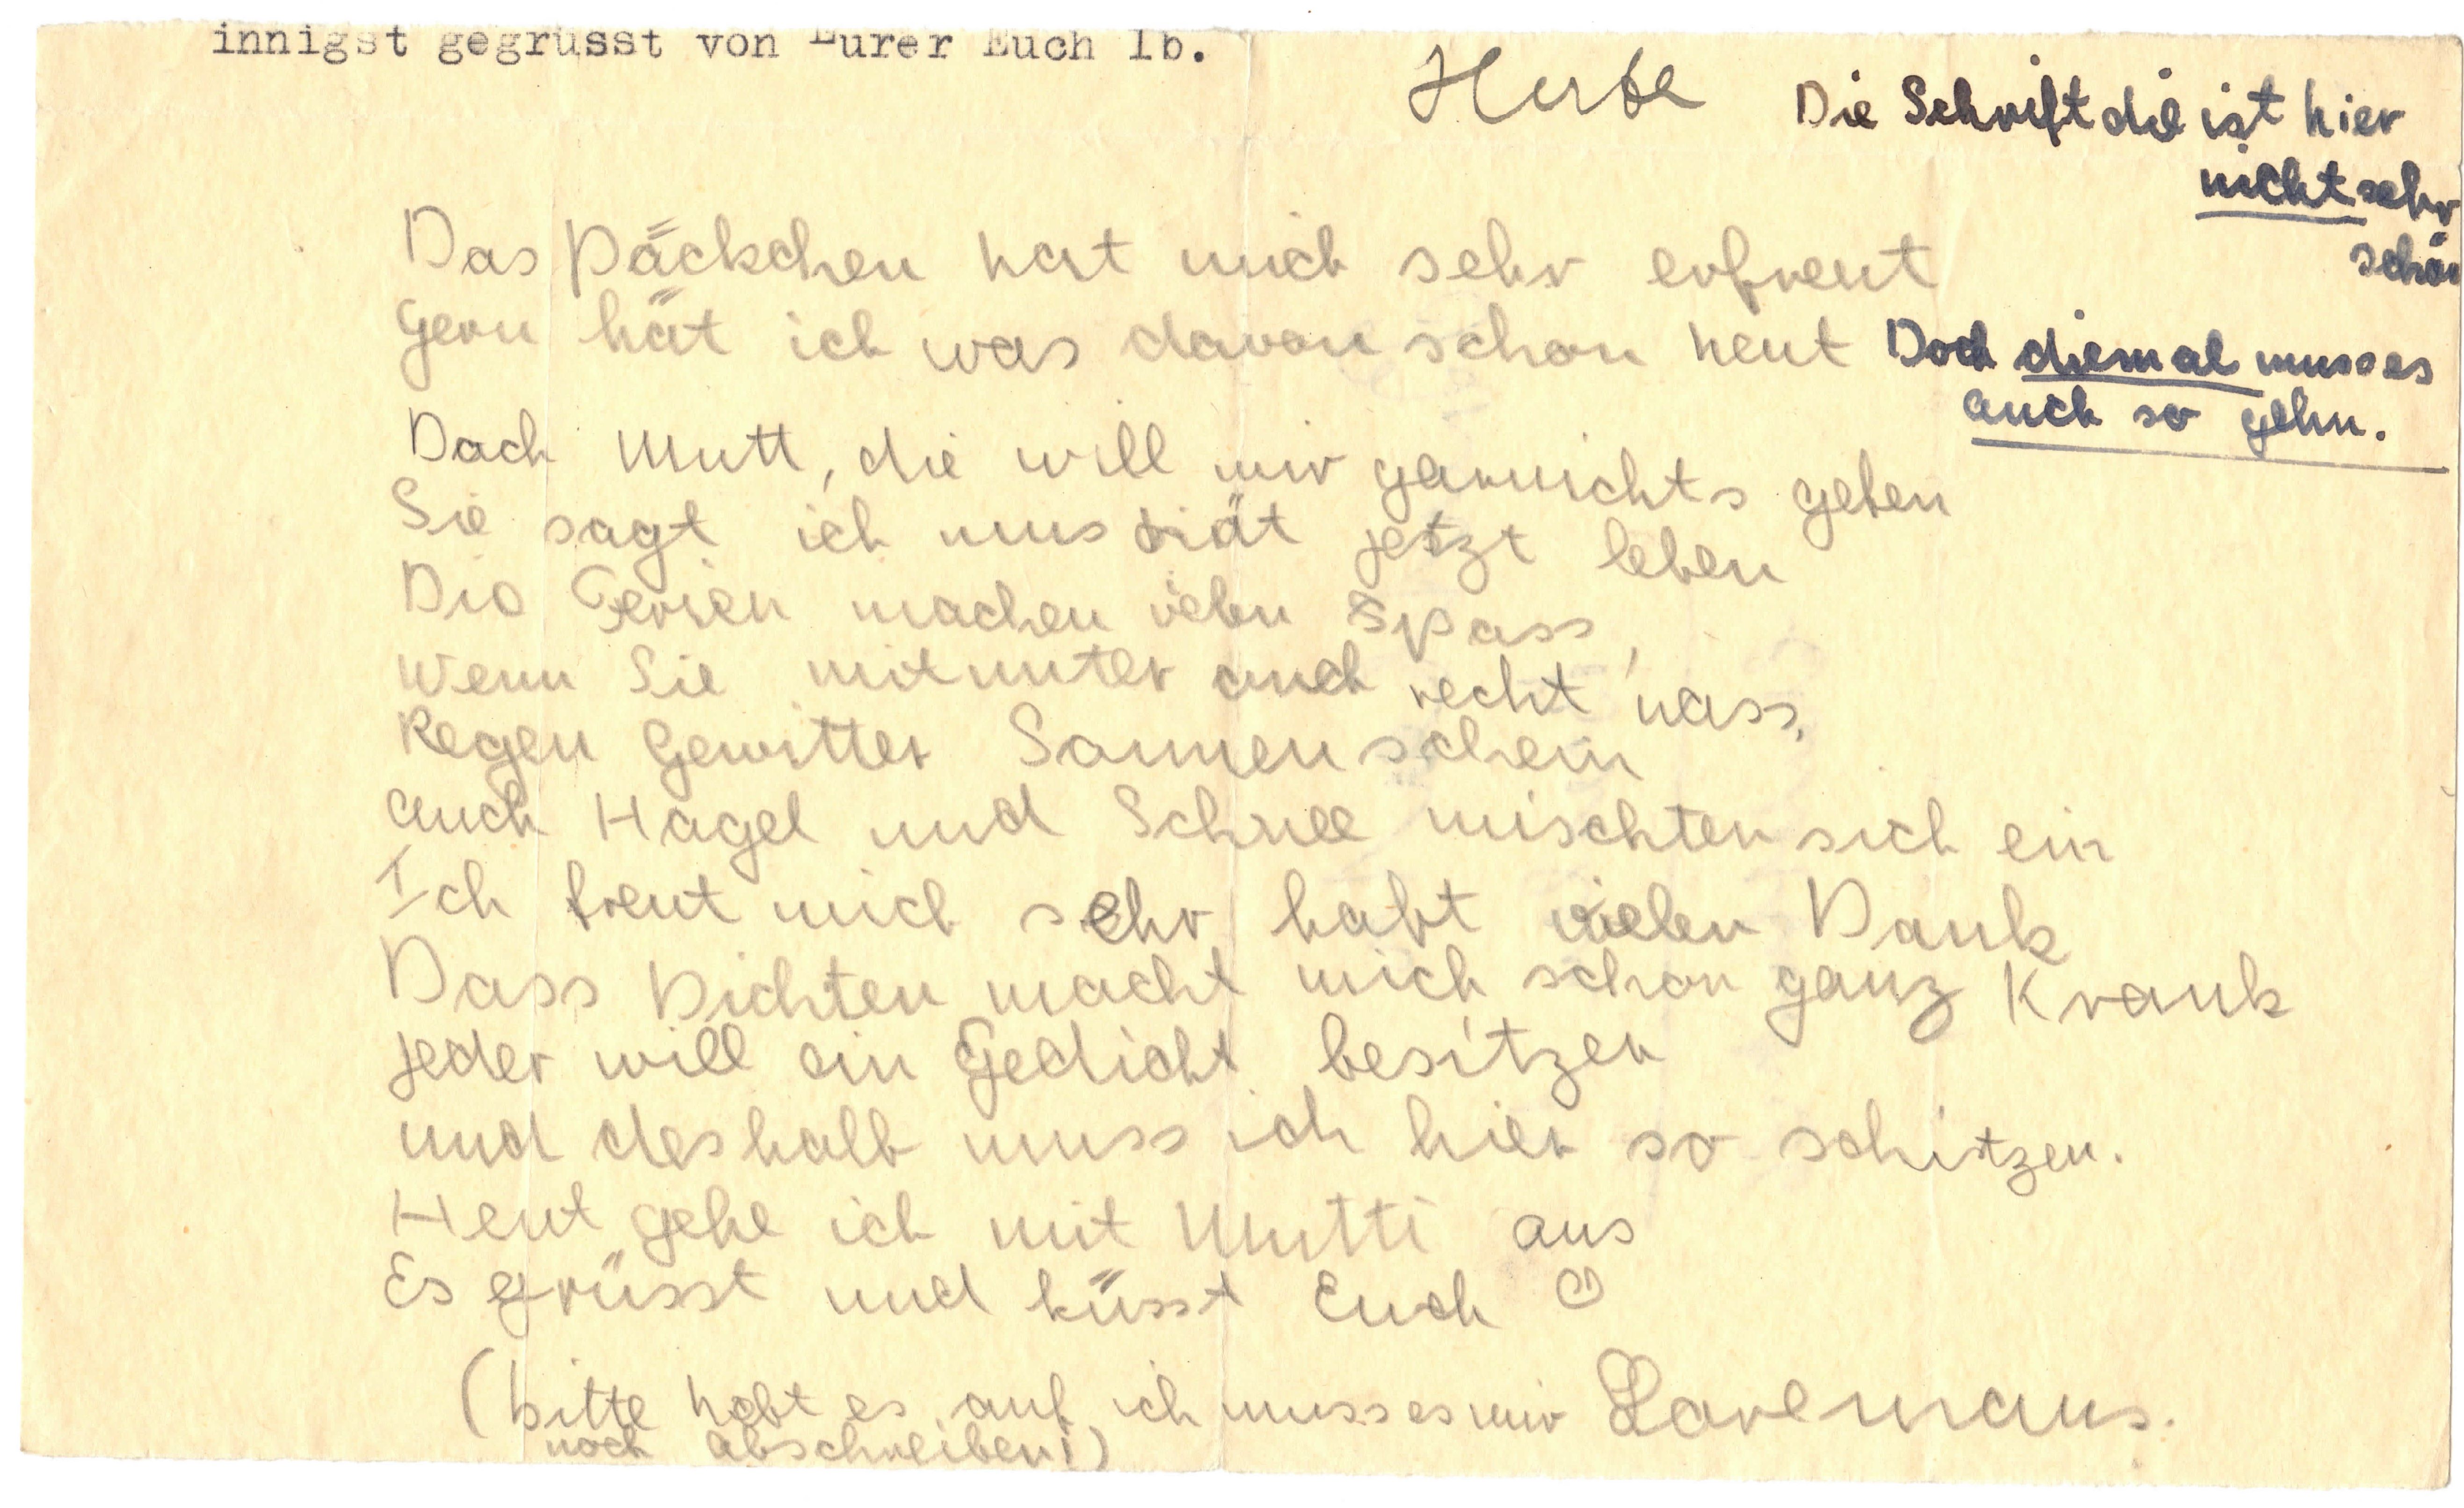 innigst gegrüsst von Eurer Euch lb.
Herta
Die Schrift die ist hier
nicht sehr
schön
Doch diemal muss es
auch so gehn.
Das Päckchen hat mich sehr erfreut
Gern hät ich was davon schon heut
Doch Mutt, die will mir garnichts geben
Sie sagt ich mus diät jetzt leben
Die Ferien machen vielen Spass,
Wenn Sie mitunter auch recht nass,
Regen Gewitter Sonnenschein
auch Hagel und Schnee mischten sich ein
Ich freut mich sehr habt vielen Dank
Dass Dichten macht mich schon ganz Krank
jeder will ein Gedicht besitzen
und deshalb muss ich hier so schitzen.
Heut gehe ich mit Mutti aus
Es grüsst und küsst Euch
Loremaus.
(bitte hebt es auf ich muss es mir
noch abschreiben!)